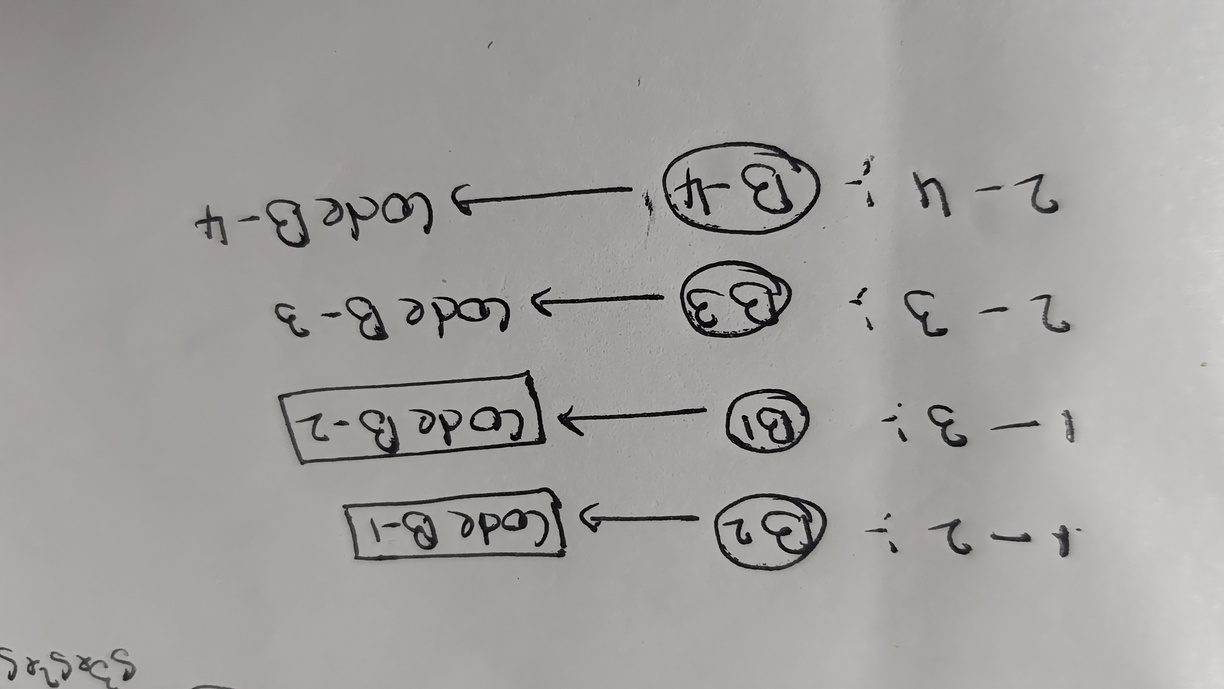 1-2 :- B2 → Code B-1
1-3 :- B1 → Code B-2
2-3 :- B3 → Code B-3
2-4 :- B-4 → Code B-4